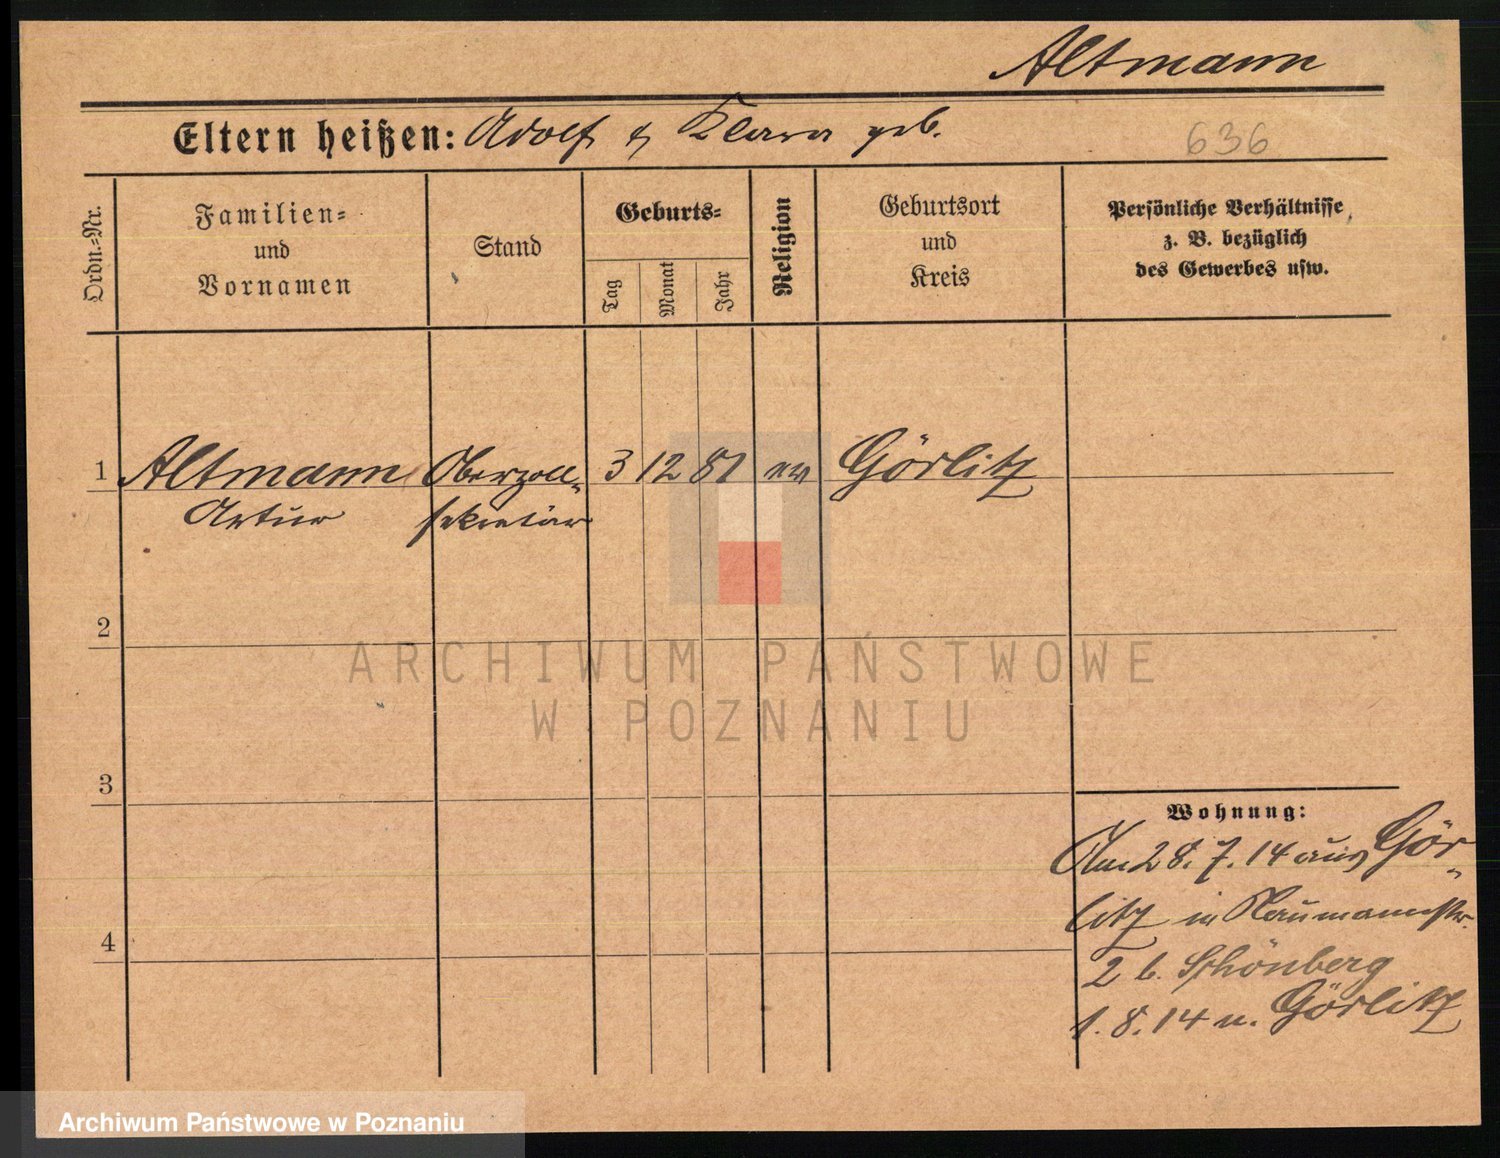 Altmann
Eltern heißen: Adolf & Klara geb.
636
Ordn.=Nr.
Familien=
und
Vornamen
Stand
Geburts=
Tag
Monat
Jahr
Religion
Geburtsort
und
Kreis
Persönliche Verhältnisse
z. B. bezüglich
des Gewerbes usw.
1 Altmann Oberzoll- 3 12 81 ev Görlitz
Artur sekretär
2
3
4
Wohnung:
Am 28. 7. 14 aus Gör-
litz in Naumannstr.
2 b. Schönberg
1. 8. 14 n. Görlitz
ARCHIWUM PAŃSTWOWE
W POZNANIU
Archiwum Państwowe w Poznaniu